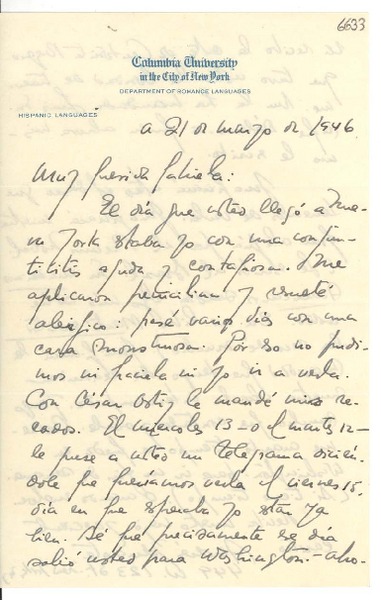 6633
Columbia University
in the City of New York
DEPARTMENT OF ROMANCE LANGUAGES
HISPANIC LANGUAGES
a 21 de marzo de 1946
Muy querida Gabriela:
El día que usted llegó a Nue-
va York estaba yo con una conjun-
tivitis aguda y contagiosa. Me
aplicaron penicilina y resulté
alérgico: pasé varios días con una
cara monstruosa. Por eso no pudi-
mos ni Graciela ni yo ir a verla.
Con César Ortiz le mandé mis re-
cados. El miércoles 13 -o el martes 12-
le puse a usted un telegrama dicién-
dole que queríamos verla el viernes 15,
día en que esperaba yo estar ya
bien. Sé que precisamente ese día
salió usted para Washington.-